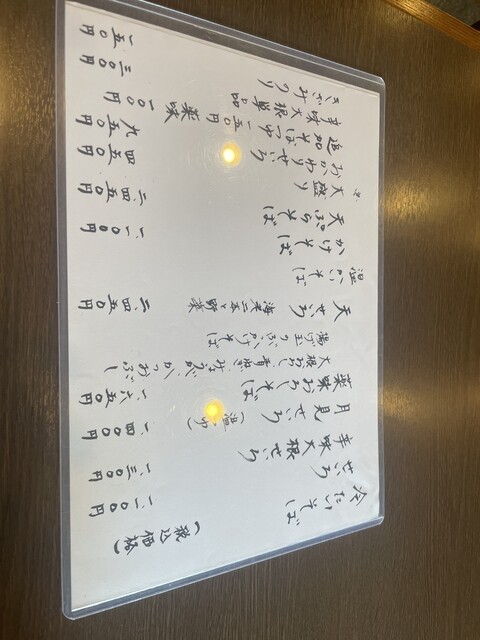 冷たいそば (税込価格)
せいろ 一、一〇〇円
辛味大根せいろ 一、三〇〇円
月見せいろ (温つゆ) 一、四〇〇円
薬味おろしそば 一、六五〇円
大根おろし 青ねぎ みょうが かつおぶし
揚げ玉のぶっかけそば
天せいろ 海老二本と野菜 二、四五〇円
温かいそば
かけそば 一、一〇〇円
天ぷらそば 二、四五〇円
大盛り 四五〇円
おかわりせいろ 九五〇円
追加そばつゆ 一五〇円 薬味 一〇〇円
辛味大根単品 三〇〇円
きざみのり 一五〇円